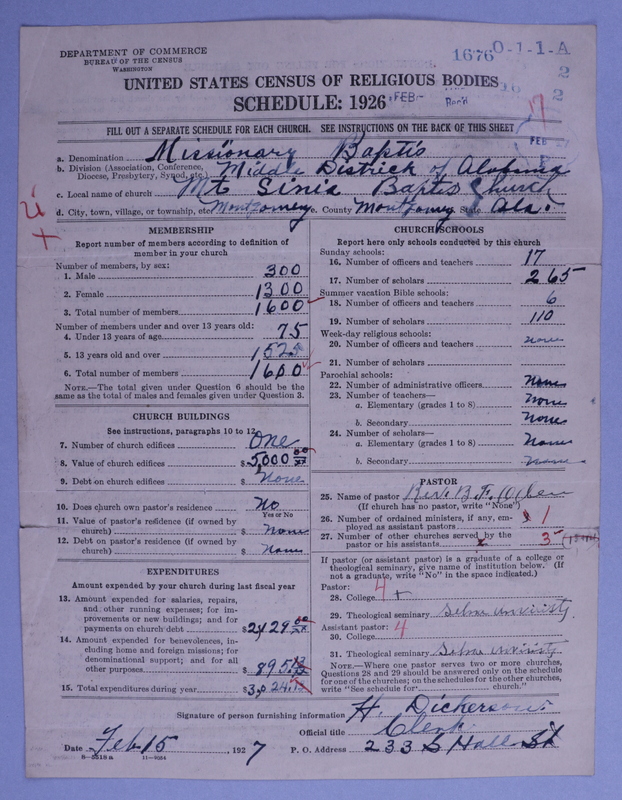 DEPARTMENT OF COMMERCE
BUREAU OF THE CENSUS
WASHINGTON
1676 O-1-1-A
2
2
UNITED STATES CENSUS OF RELIGIOUS BODIES
SCHEDULE: 1926
FEB
Rec'd
17
FILL OUT A SEPARATE SCHEDULE FOR EACH CHURCH. SEE INSTRUCTIONS ON THE BACK OF THIS SHEET
FEB
a. Denomination Missionary Baptis
b. Division (Association, Conference, Diocese, Presbytery, Synod, etc.) Middle District of Alabama
c. Local name of church Mt Sinia Baptis Church
d. City, town, village, or township, etc. Montgomery e. County Montgomery State Ala.
MEMBERSHIP
Report number of members according to definition of
member in your church
Number of members, by sex:
1. Male 300
2. Female 1300
3. Total number of members 1600
Number of members under and over 13 years old:
4. Under 13 years of age 75
5. 13 years old and over 1525
6. Total number of members 1600
NOTE.—The total given under Question 6 should be the
same as the total of males and females given under Question 3.
CHURCH BUILDINGS
See instructions, paragraphs 10 to 12
7. Number of church edifices One
8. Value of church edifices $5,000
9. Debt on church edifices $ None
10. Does church own pastor's residence No
Yes or No
11. Value of pastor's residence (if owned by
church) $ None
12. Debt on pastor's residence (if owned by
church) $ None
EXPENDITURES
Amount expended by your church during last fiscal year
13. Amount expended for salaries, repairs,
and other running expenses; for im-
provements or new buildings; and for
payments on church debt $2,129
14. Amount expended for benevolences, in-
cluding home and foreign missions; for
denominational support; and for all
other purposes $ 895.13
15. Total expenditures during year $3,024.13
CHURCH SCHOOLS
Report here only schools conducted by this church
Sunday schools:
16. Number of officers and teachers 17
17. Number of scholars 265
Summer vacation Bible schools:
18. Number of officers and teachers 6
19. Number of scholars 110
Week-day religious schools:
20. Number of officers and teachers None
21. Number of scholars
Parochial schools:
22. Number of administrative officers None
23. Number of teachers—
a. Elementary (grades 1 to 8) None
b. Secondary None
24. Number of scholars—
a. Elementary (grades 1 to 8) None
b. Secondary None
PASTOR
25. Name of pastor Rev. B. F.
(If church has no pastor, write "None")
26. Number of ordained ministers, if any, em-
ployed as assistant pastors 1
27. Number of other churches served by the
pastor or his assistants 3
If pastor (or assistant pastor) is a graduate of a college or
theological seminary, give name of institution below. (If
not a graduate, write "No" in the space indicated.)
Pastor:
28. College 4 +
29. Theological seminary Selma
Assistant pastor: 4
30. College
31. Theological seminary Selma
NOTE.—Where one pastor serves two or more churches,
Questions 28 and 29 should be answered only on the schedule
for one of the churches; on the schedules for the other churches,
write "See schedule for church."
Signature of person furnishing information H. Dickerson.
Official title Clerk
Date Feb 15, 1927 P. O. Address 233 S Hall St
11—9354